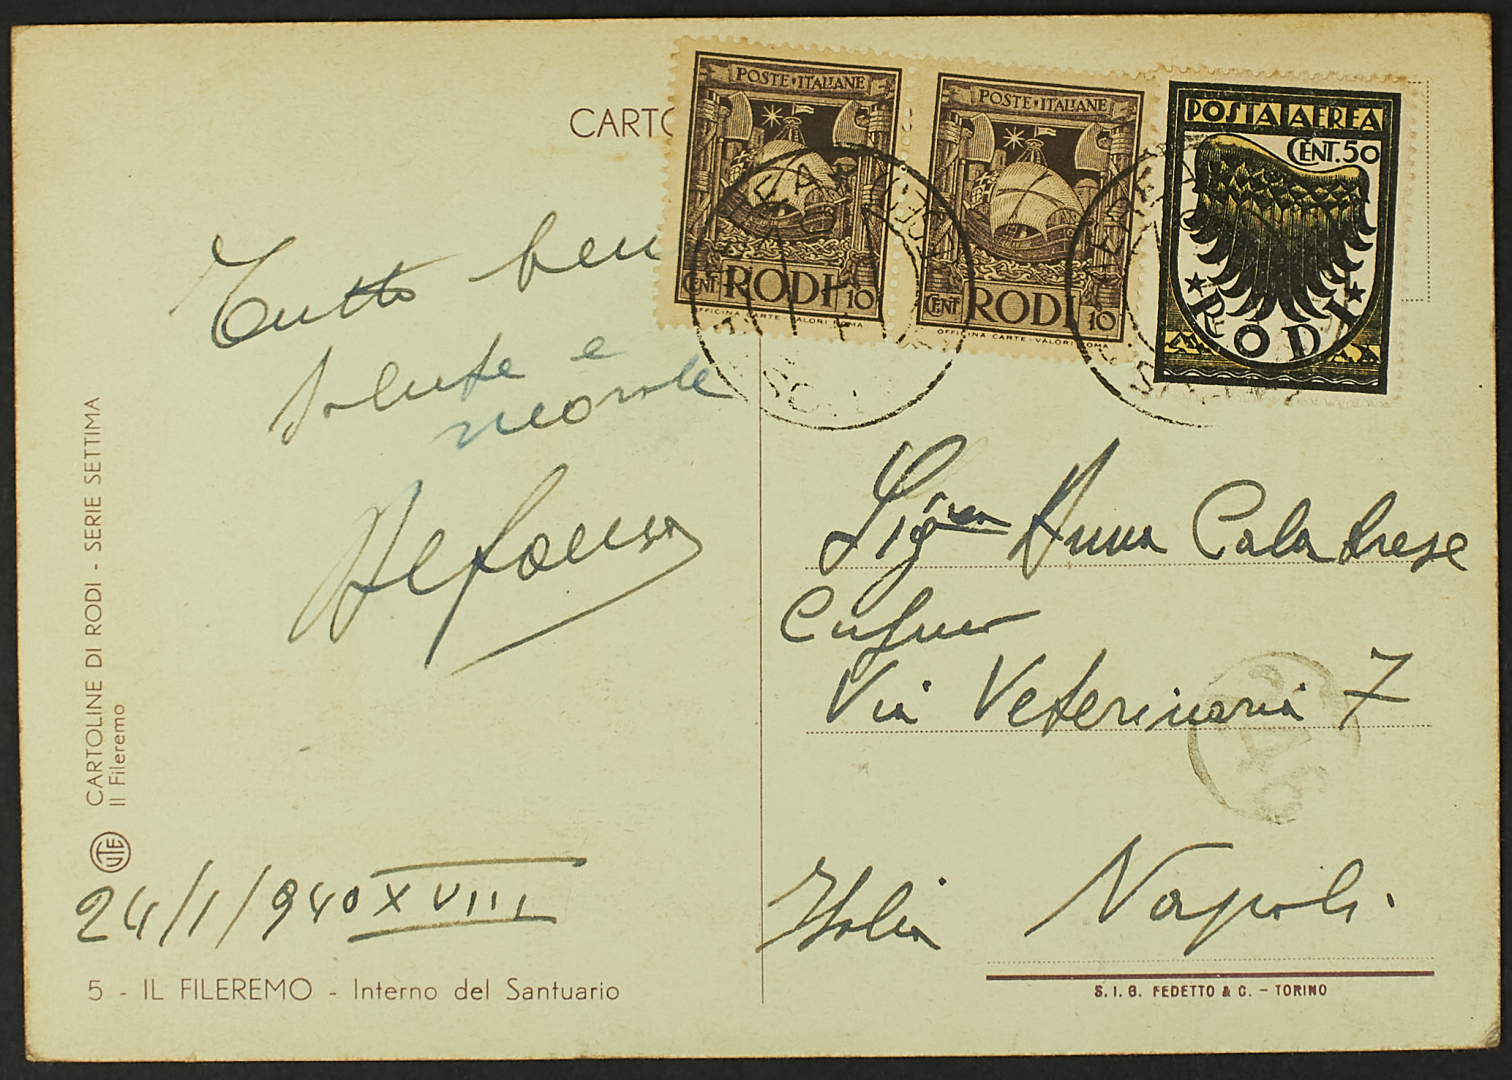 CARTO
POSTE•ITALIANE
CENT. RODI 10
OFFICINA CARTE-VALORI ROMA
POSTE•ITALIANE
CENT. RODI 10
OFFICINA CARTE-VALORI ROMA
POSTA AEREA
CENT. 50
RODI
Tutto bene
salute e
morale
Sig.ra Anna Calabrese
Via Veterinaria 7
Italia Napoli.
24/1/940 XVIII
CARTOLINE DI RODI - SERIE SETTIMA
Il Fileremo
UTE
5 - IL FILEREMO - Interno del Santuario
S. I. G. FEDETTO & C. - TORINO